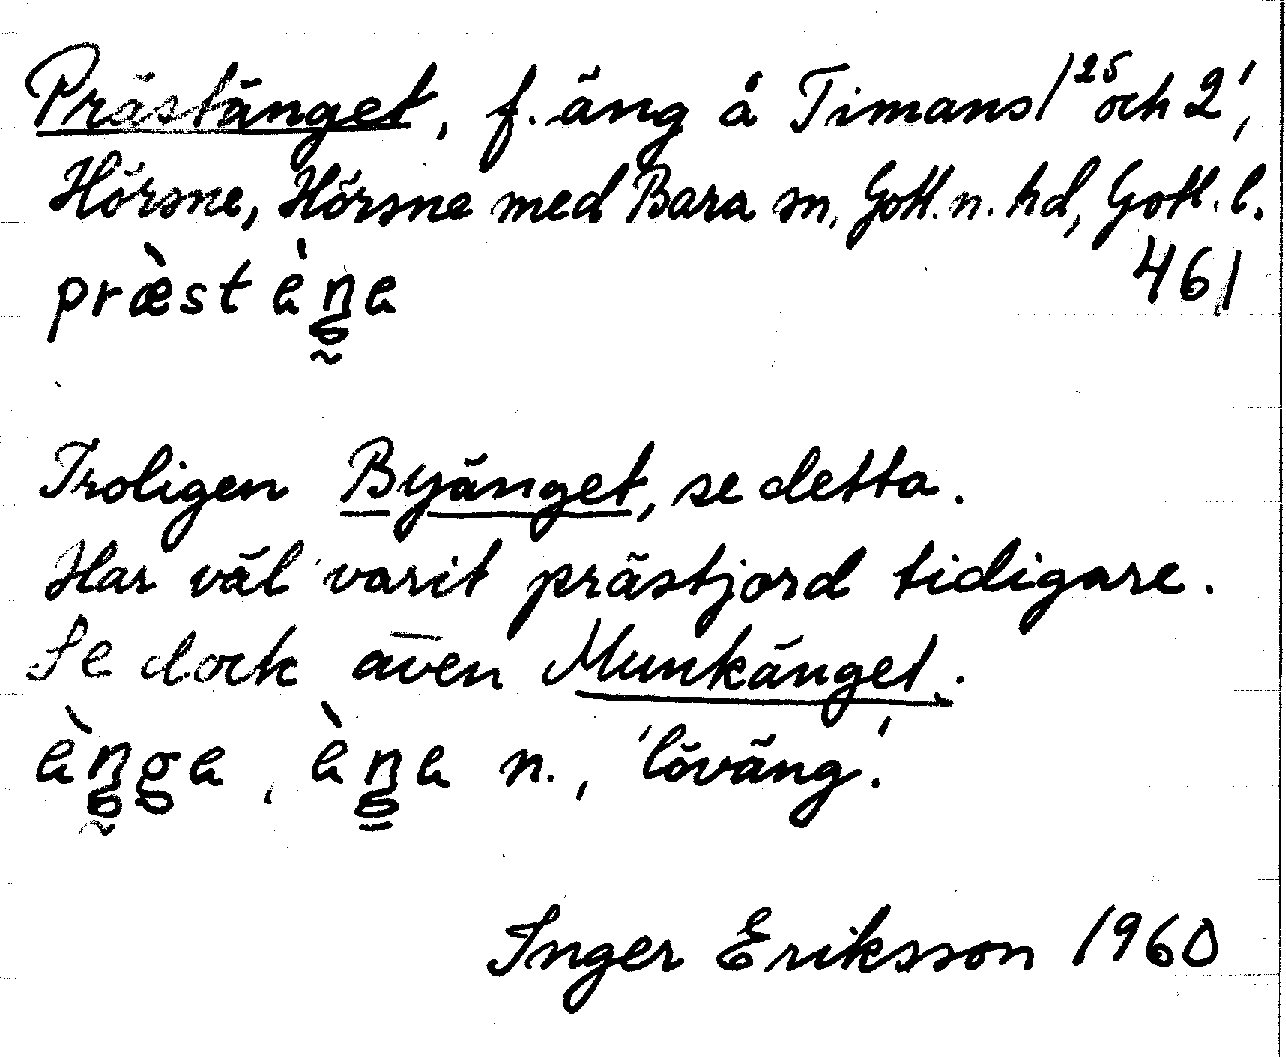 Prästänget, f. äng å Timans 1²⁵ och 2¹,
Hörsne, Hörsne med Bara sn, Gotl. n. hd, Gotl. l.
præ̀stèŋa 461
Troligen Byänget, se detta.
Har väl varit prästjord tidigare.
Se dock även Munkänget.
èŋga, èŋa n., 'löväng'.
Inger Eriksson 1960